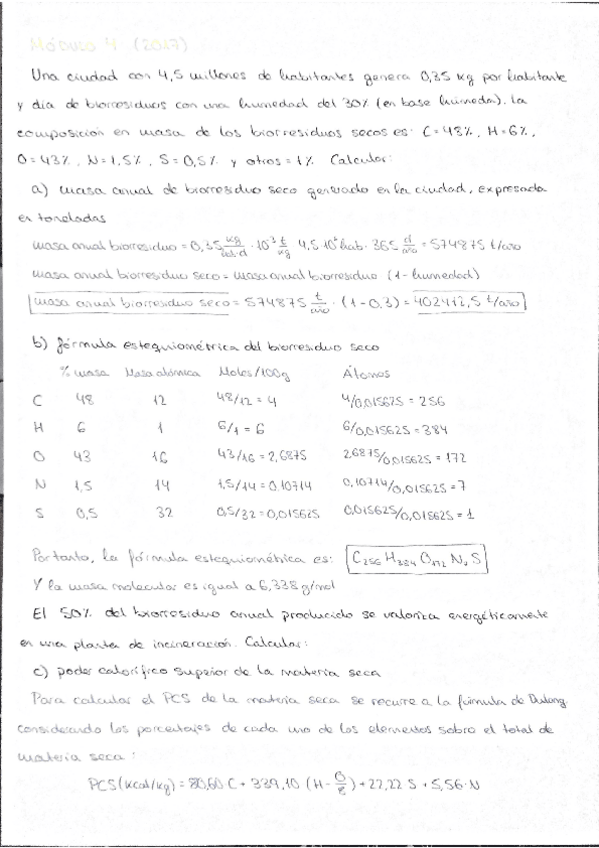 Módulo 4 (2017)
Una ciudad con 4,5 millones de habitantes genera 0,35 kg por habitante
y día de biorresiduos con una humedad del 30% (en base húmeda). La
composición en masa de los biorresiduos secos es: C=48%, H=6%,
O=43%, N=1,5%, S=0,5% y otros=1%. Calcular:
a) masa anual de biorresiduo seco generado en la ciudad, expresada
en toneladas
masa anual biorresiduo = 0,35 kg/hab·d · 10⁻³ t/kg · 4,5·10⁶ hab · 365 d/año = 574875 t/año
masa anual biorresiduo seco = masa anual biorresiduo (1-humedad)
masa anual biorresiduo seco = 574875 t/año · (1-0,3) = 402412,5 t/año
b) fórmula estequiométrica del biorresiduo seco
% masa Masa atómica Moles/100g Átomos
C 48 12 48/12 = 4 4/0,015625 = 256
H 6 1 6/1 = 6 6/0,015625 = 384
O 43 16 43/16 = 2,6875 2,6875/0,015625 = 172
N 1,5 14 1,5/14 = 0,10714 0,10714/0,015625 = 7
S 0,5 32 0,5/32 = 0,015625 0,015625/0,015625 = 1
Por tanto, la fórmula estequiométrica es: C₂₅₆ H₃₈₄ O₁₇₂ N₇ S
Y la masa molecular es igual a 6,338 g/mol
El 50% del biorresiduo anual producido se valoriza energéticamente
en una planta de incineración. Calcular:
c) poder calorífico superior de la materia seca
Para calcular el PCS de la materia seca se recurre a la fórmula de Dulong,
considerando los porcentajes de cada uno de los elementos sobre el total de
materia seca:
PCS (kcal/kg) = 80,60 C + 339,10 (H - O/8) + 22,22 S + 5,56·N